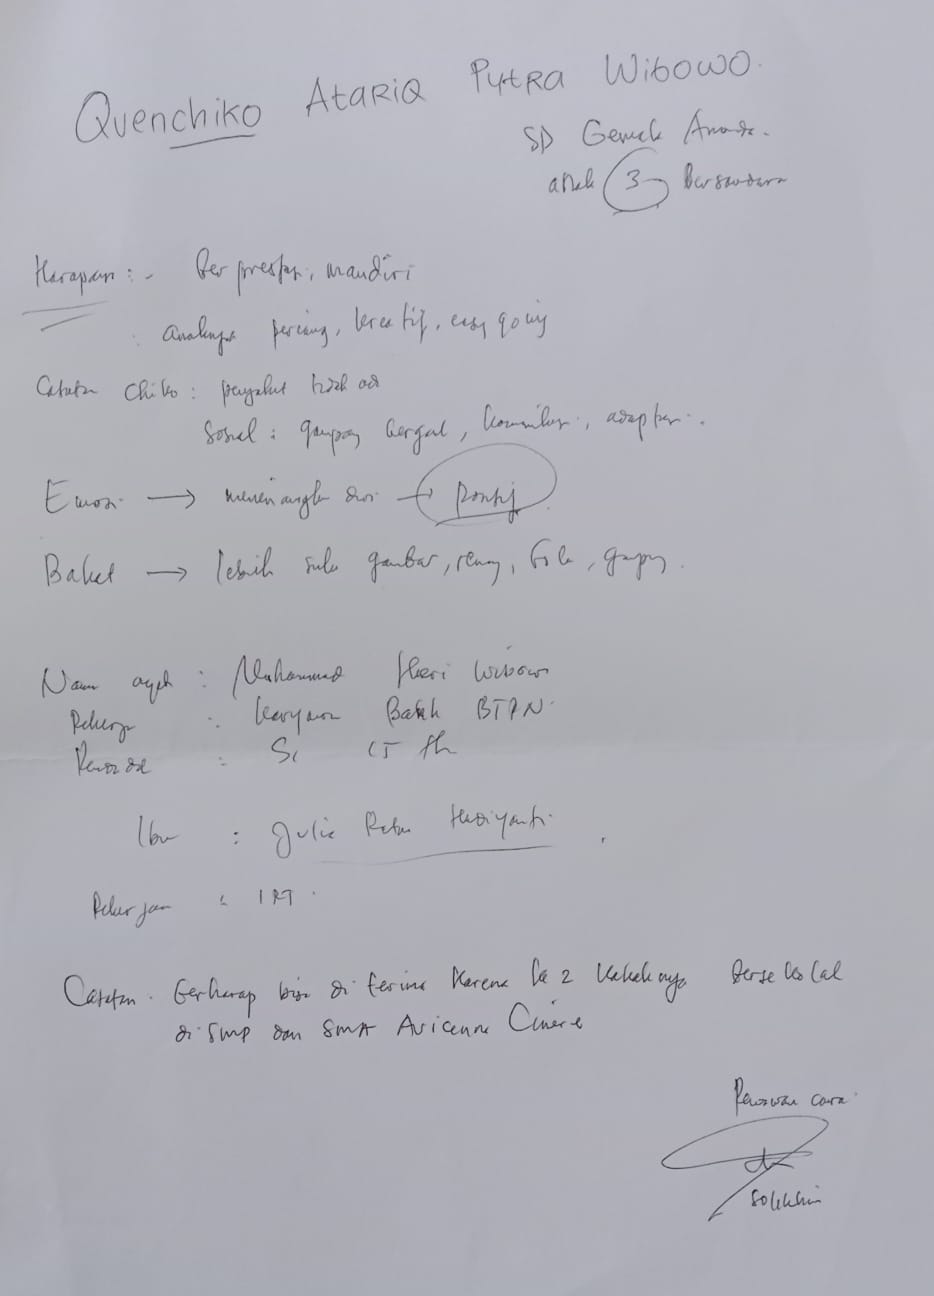 Quenchiko Atariq Putra Wibowo.
SD Gemala Ananda.
anak 3 bersaudara
Harapan : - Berprestasi, mandiri
: anaknya periang, kreatif, easy going
Catatan Chiko : penyakit tidak ada
Sosial : gampang bergaul, komunikasi, adaptasi.
Emosi → menenangkan diri →
Bakat → lebih suka gambar, renang, bola, gampang.
Nama ayah : Muhammad Heri Wibowo
Pekerja : Karyawan Bank BTPN.
: S1 15 th
Ibu : Julia Heriyanti.
Pekerjaan : IRT.
Catatan. Berharap bisa di terima karena ke 2 kakaknya bersekolah
di SMP dan SMA Avicenna Cinere
Pewawancara.
Solikhin